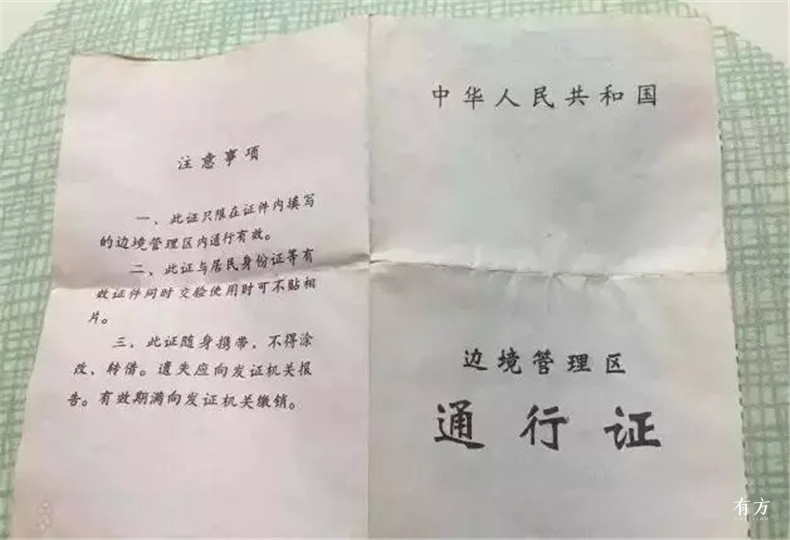 注意事项
一、此证只限在证件内填写
的边境管理区内通行有效。
二、此证与居民身份证等有
效证件同时交验使用时可不贴相
片。
三、此证随身携带，不得涂
改、转借。遗失应向发证机关报
告。有效期满向发证机关缴销。
中华人民共和国
边境管理区
通行证
有方